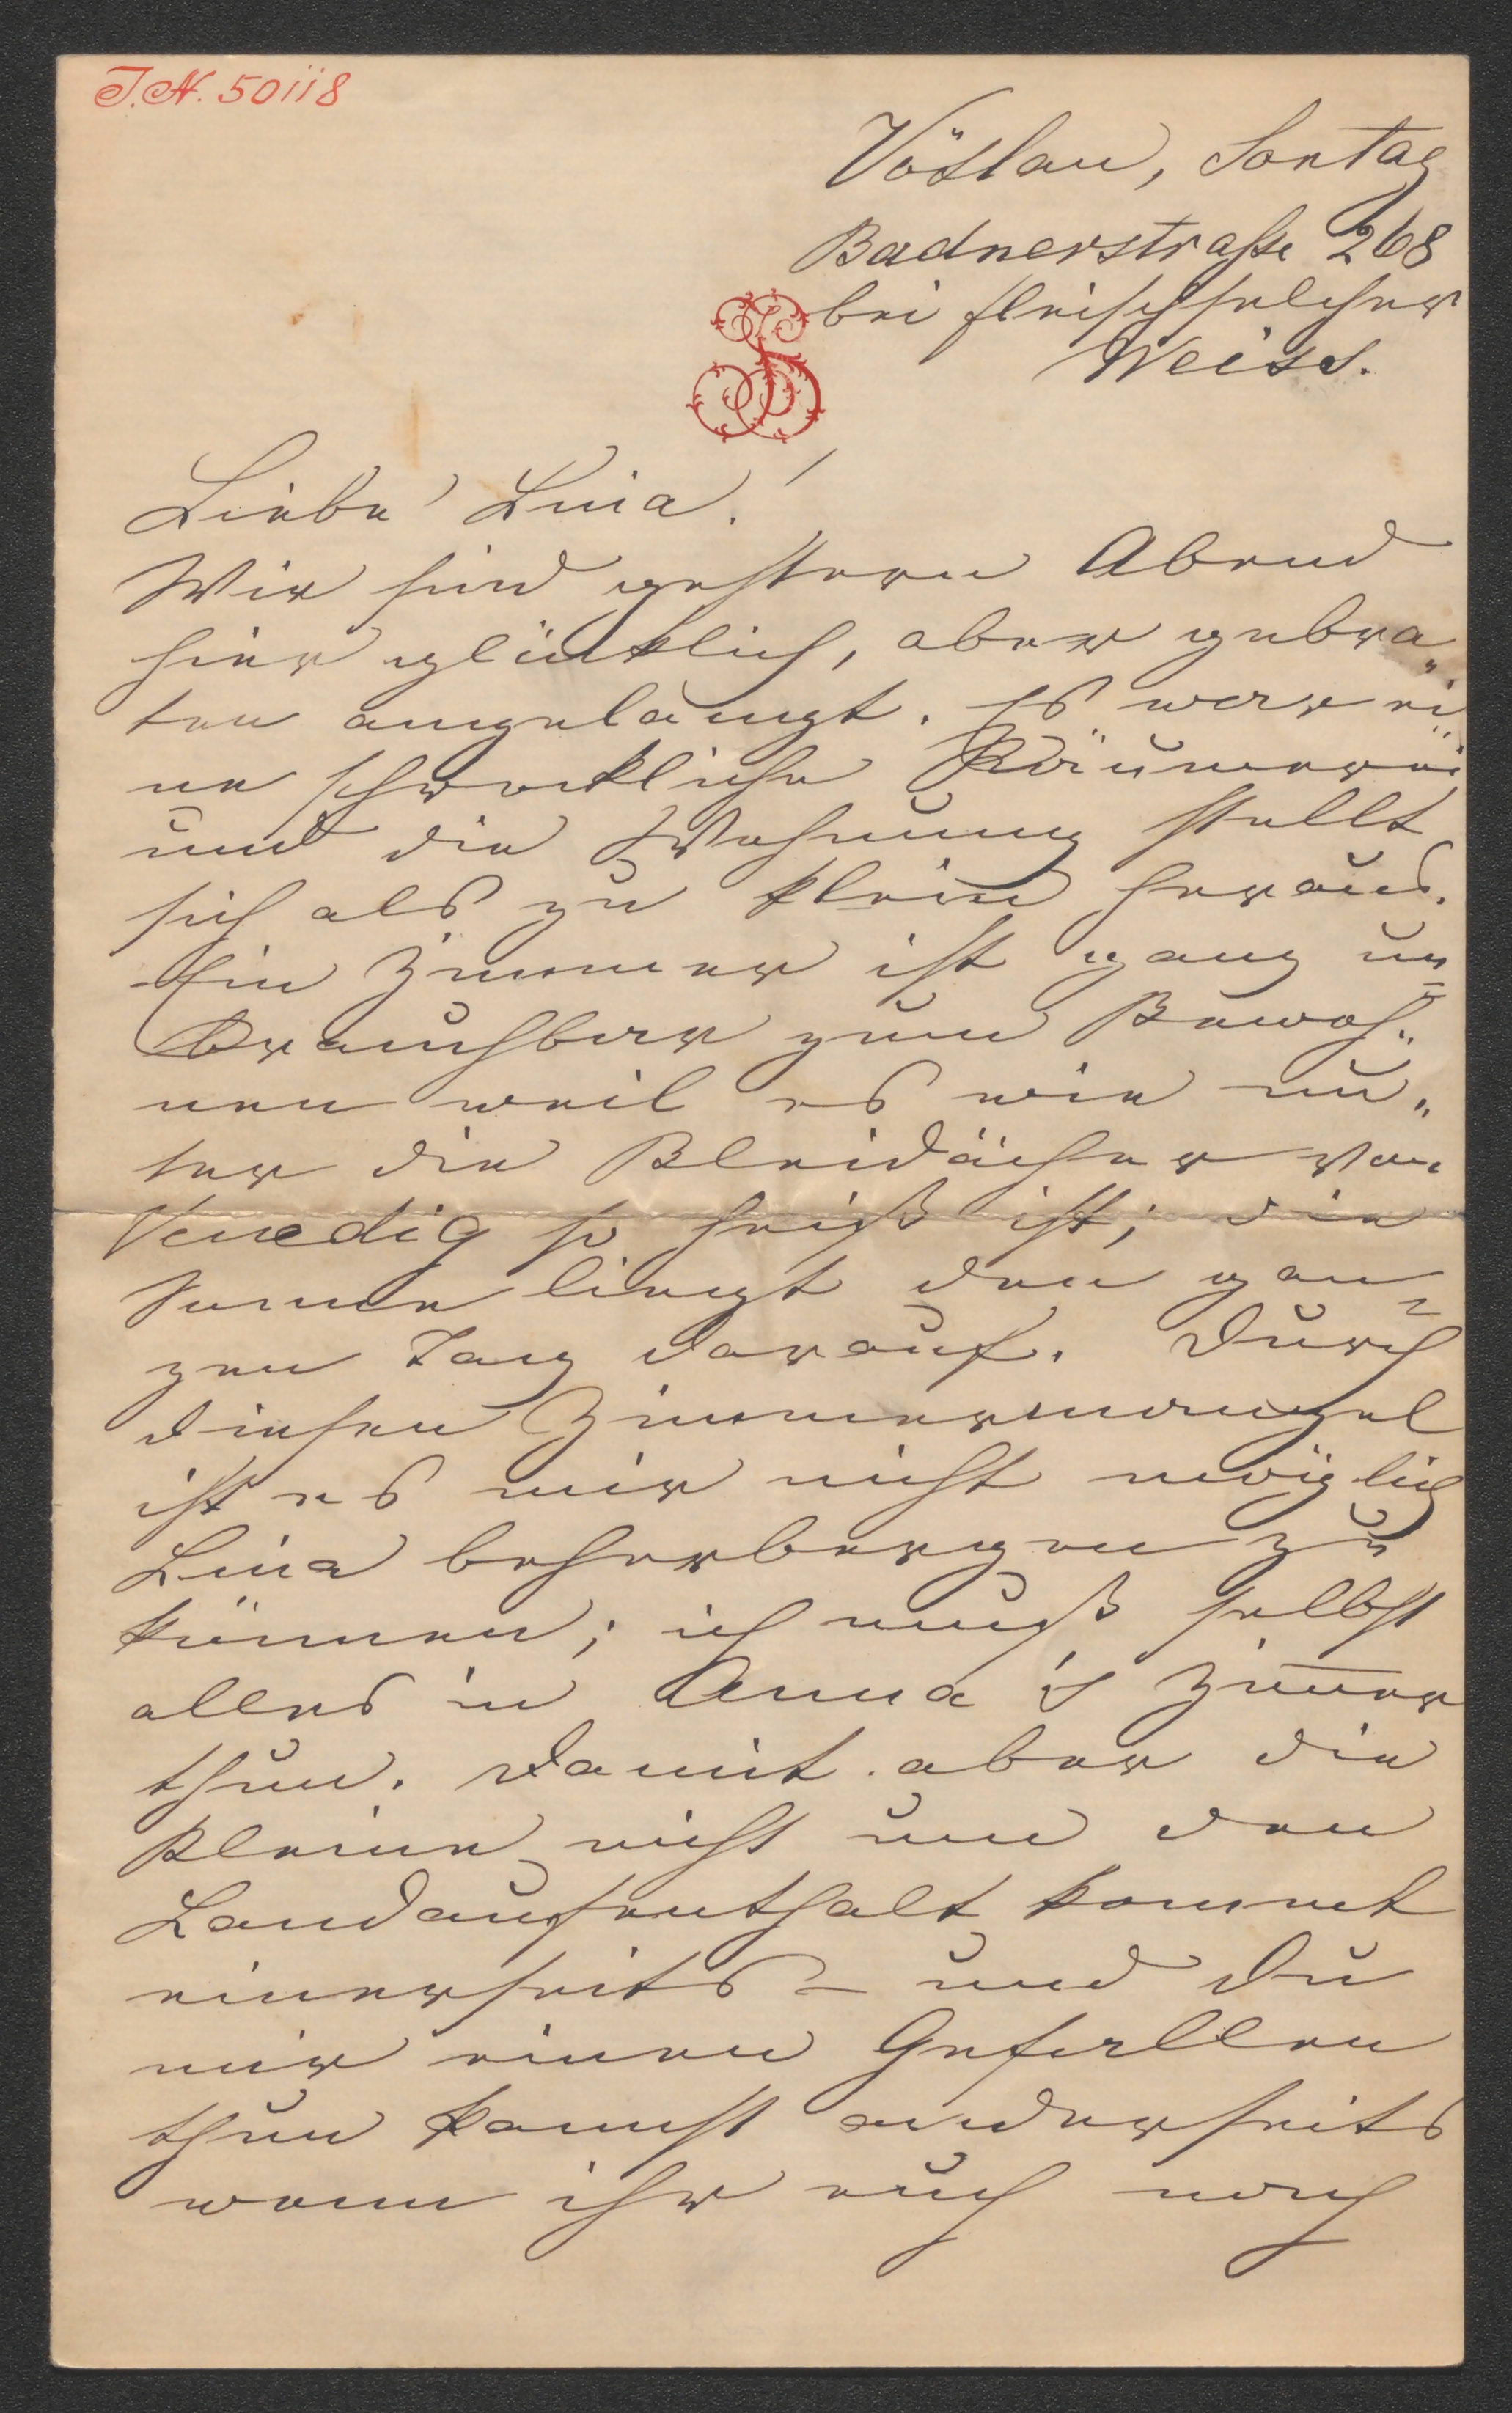 I.N. 50118
Vöslau, Sontag
Badnerstraße 268
bei Fleischselcher
Weiss.
Liebe Lina!
Wir sind gestern Abend
hier glücklich, aber gebra„
ten angelangt. Es war ei„
ne schreckliche Räumerei
und die Wohnung stellt
sich als zu klein heraus.
Ein Zimmer ist ganz un=
brauchbar zum Bewoh„
nen weil es wie un„
ter die Bleidächer von
Venedig so heiß ist; die
Sonne liegt den gan„
zen Tag darauf. Durch
diesen Zimmermangel
ist es mir nicht möglich
Lina beherbergen zu
können; ich muß selbst
alles in Anna's Zim̅er
thun. Damit aber die
Kleine nicht um den
Landaufenthalt kommt
einerseits – und Du
mir einen Gefallen
thun kannst anderseits
wenn ihr euch noch